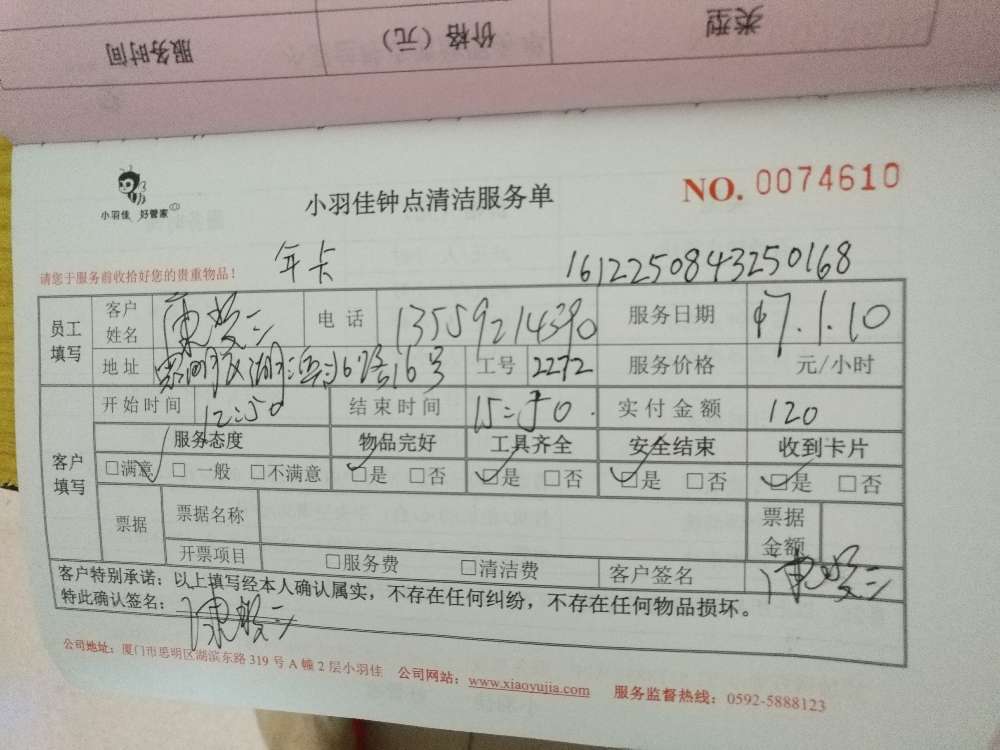 服务时间 价格（元） 类型
小羽佳 好管家
小羽佳钟点清洁服务单
NO. 0074610
年卡
1612250843250168
请您于服务前收拾好您的贵重物品！
员工填写 客户姓名 电话 13559214390 服务日期 17.1.10
地址 思明区湖滨 16号 工号 2272 服务价格 元/小时
客户填写 开始时间 12:50 结束时间 15:50. 实付金额 120
服务态度 物品完好 工具齐全 安全结束 收到卡片
□满意 □一般 □不满意 □是 □否 □是 □否 □是 □否 □是 □否
票据 票据名称 票据金额
开票项目 □服务费 □清洁费 客户签名
客户特别承诺：以上填写经本人确认属实，不存在任何纠纷，不存在任何物品损坏。
特此确认签名：
公司地址：厦门市思明区湖滨东路 319 号 A 幢 2 层小羽佳 公司网站：www.xiaoyujia.com 服务监督热线：0592-5888123